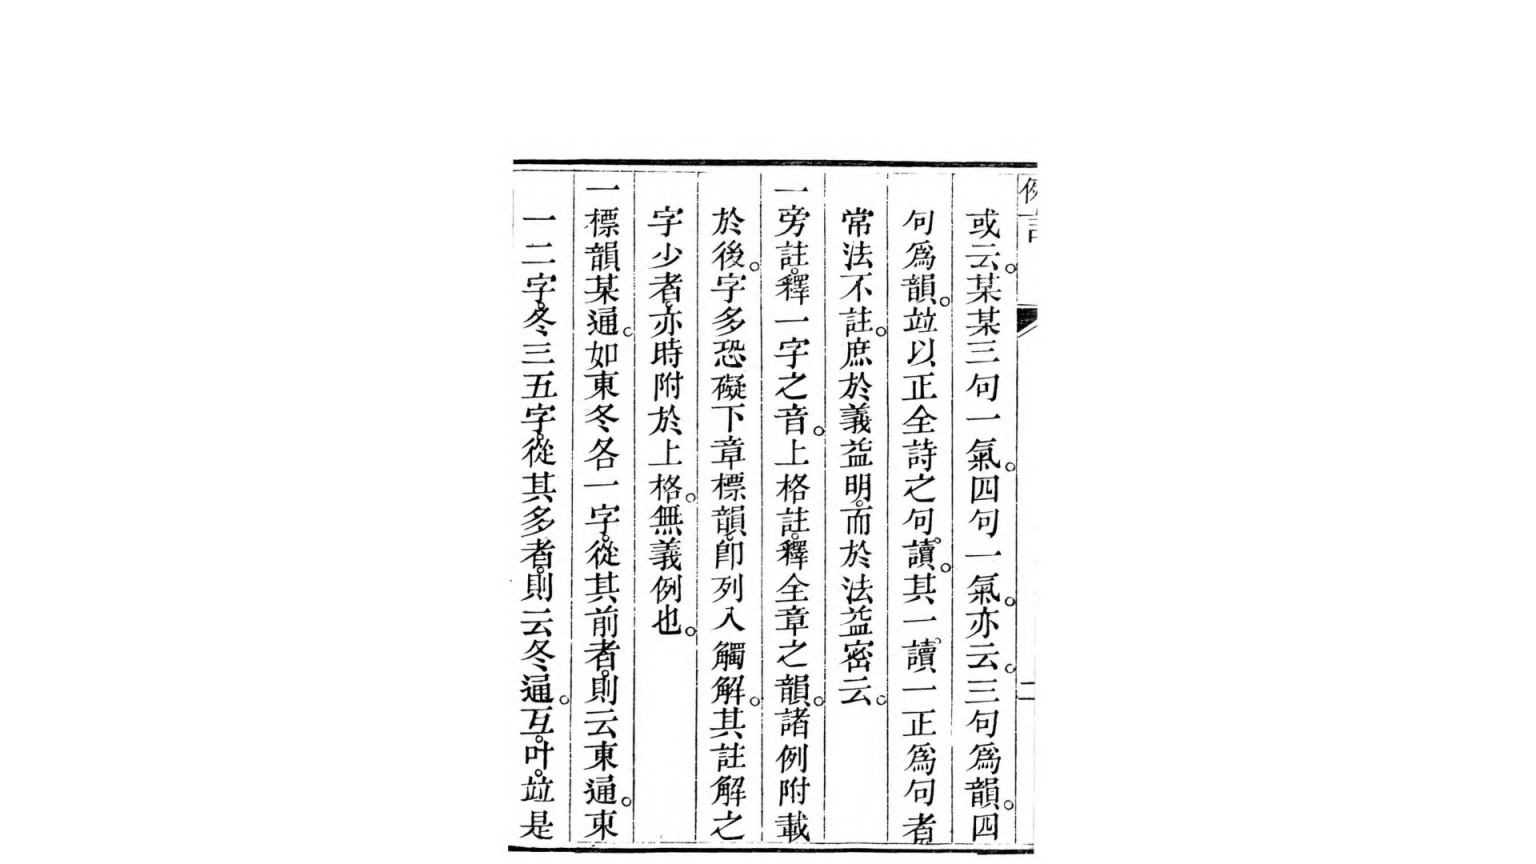 或云。某某三句一氣。四句一氣。亦云。三句爲韻。四
句爲韻。竝以正全詩之句。讀。其一讀一正爲句者
常法不註。庶於義益明。而於法益密云。
一旁註。釋一字之音。上格註。釋全章之韻。諸例附載
於後。字多恐礙下章標韻。卽列入觸解。其註解之
字少者。亦時附於上格。無義例也。
一標韻某通。如東冬各一字。從其前者。則云東通。東
一二字。冬三五字。從其多者。則云冬通。互。叶。竝是